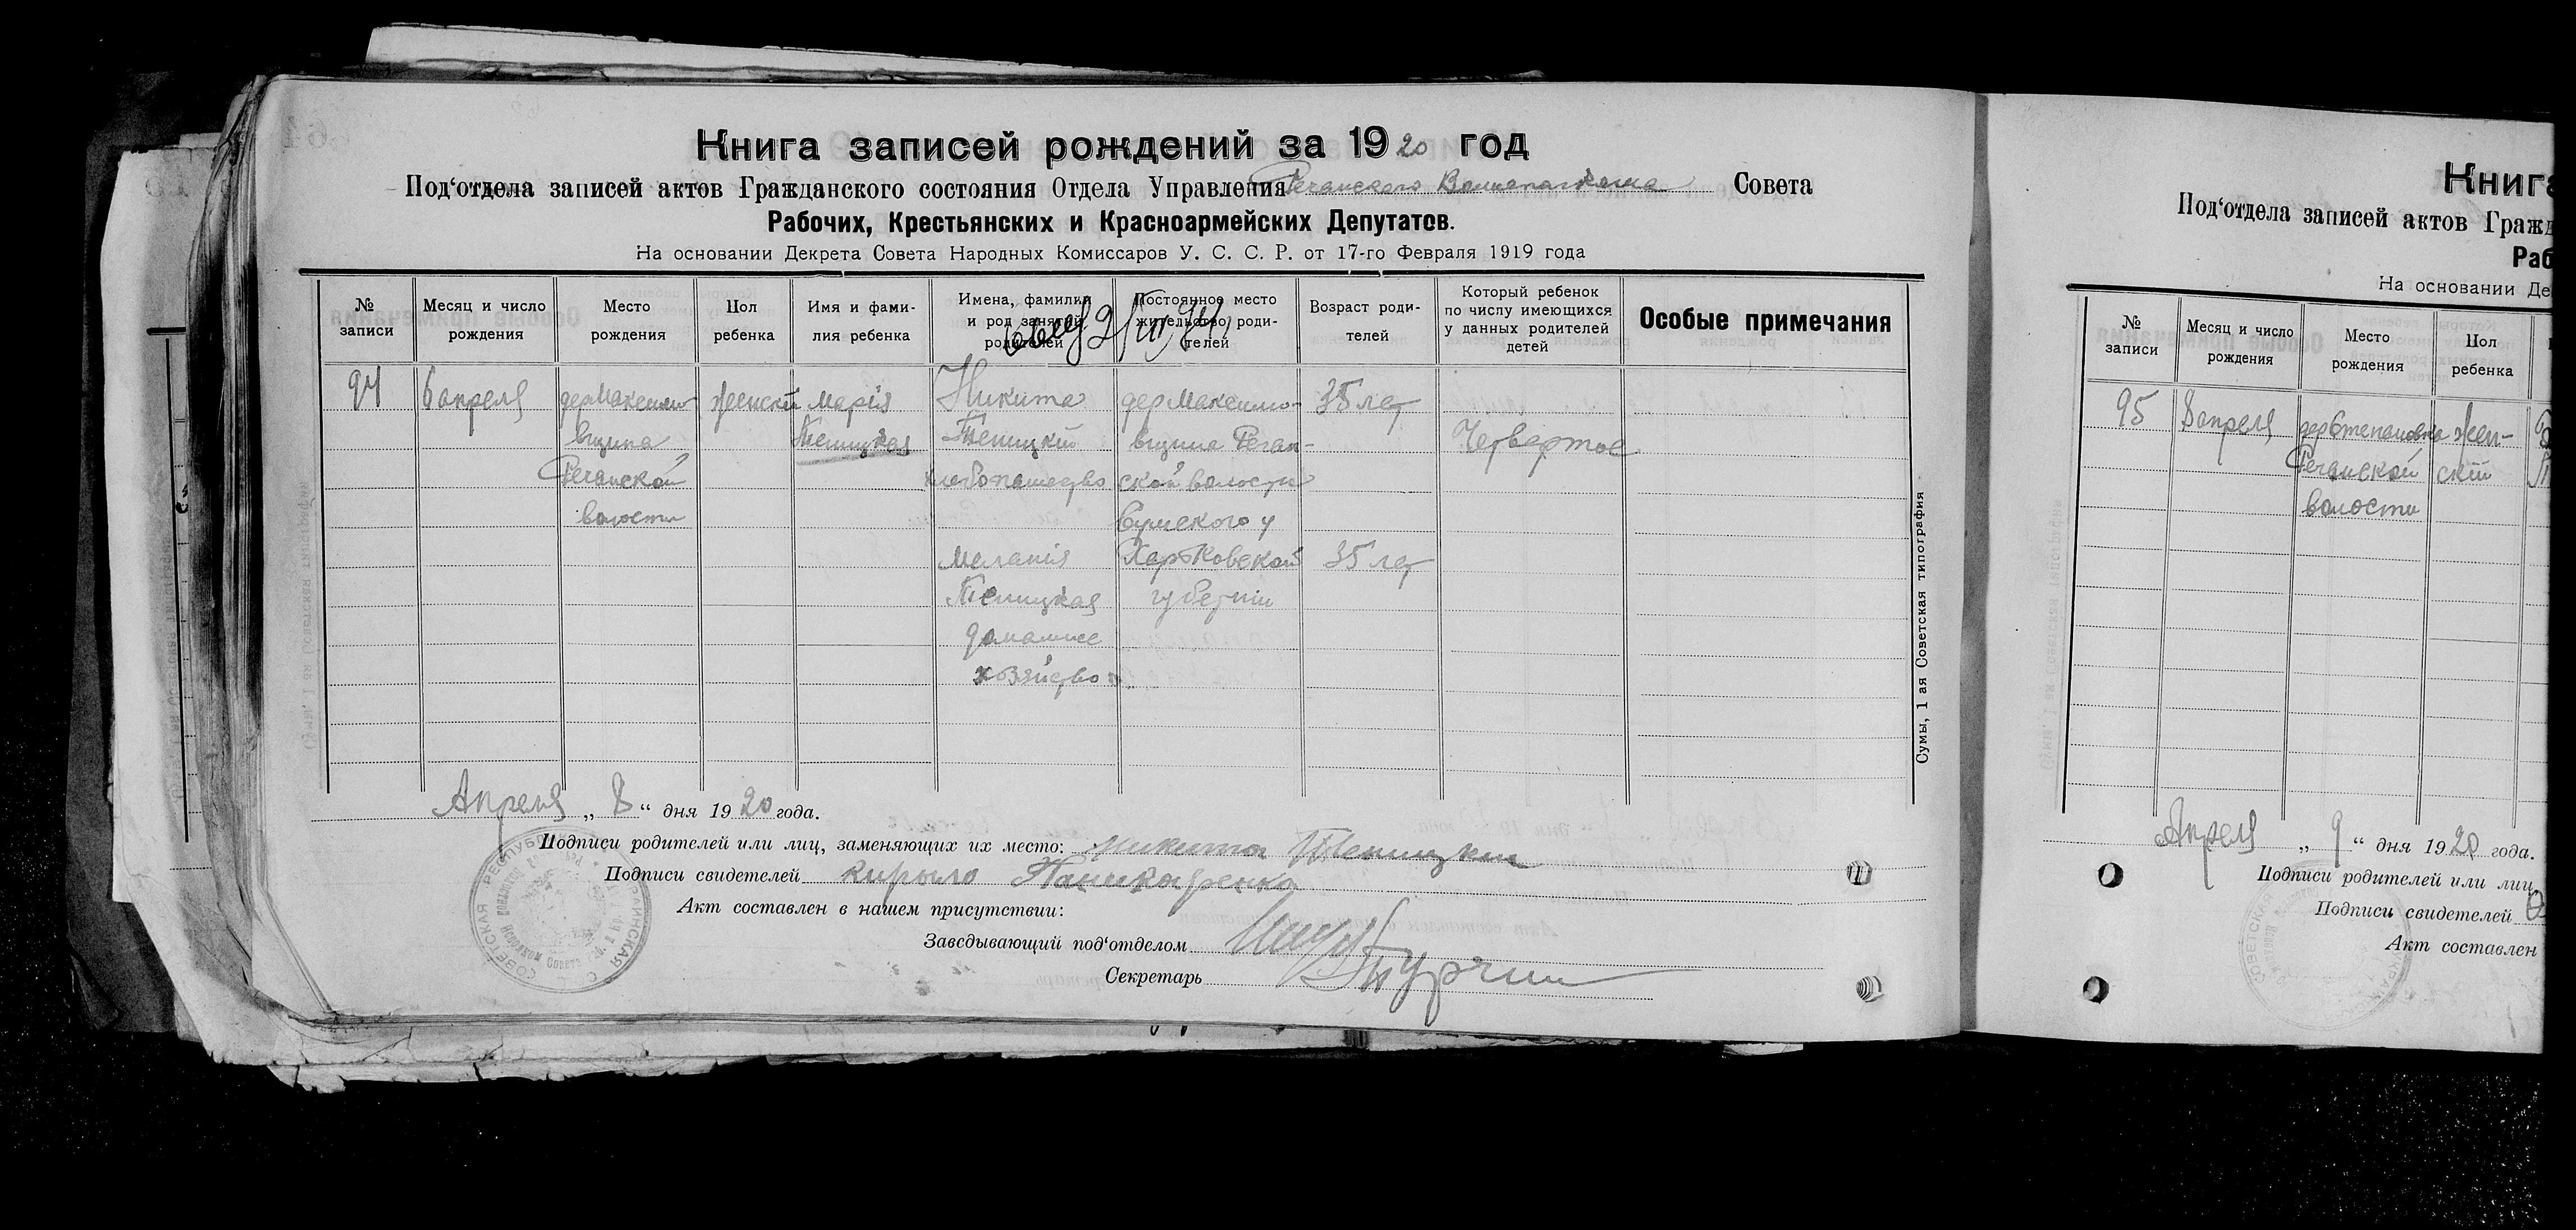 Книга записей рождений за 1920 год
Под‘отдела записей актов Гражданского состояния Отдела Управления Речанского Совета
Рабочих, Крестьянских и Красноармейских Депутатов.
На основании Декрета Совета Народных Комиссаров У. С. С. Р. от 17-го Февраля 1919 года
№ записи
Месяц и число рождения
Место рождения
Пол ребенка
Имя и фами-
лия ребенка
Имена, фамилии
и род занятий
родителей
Постоянное место
жительство роди-
телей
Возраст роди-
телей
Который ребенок
по числу имеющихся
у данных родителей
детей
Особые примечания
94
6 апреля
дер Максимо
вщина
Речанской
волости
женскій
Марія
Теницкая
Никита
Теницкій
хлебопашество
Меланія
Теницкая
домашнее
хозяйство
дер Максимо-
вщина Речан-
ской волости
Сумского у
Харьковской
губерніи
35 лет
35 лет
Четвертое
Апреля „ 8 “ дня 1920 года.
Подписи родителей или лиц, заменяющих их место: Микита Теницкий
Подписи свидетелей Кирыло
Акт составлен в нашем присутствии:
Заведывающий под‘отделом
Секретарь
Сумы, 1 ая Советская типография
Книга
Под‘отдела записей актов Гражд
Раб
На основании Де
№ записи
Месяц и число рождения
Место рождения
Пол ребенка
95
8 апреля
дер Степановка
Речанской
волости
жен-
скій
Апреля „ 9 “ дня 1920 года.
Подписи родителей или лиц
Подписи свидетелей
Акт составлен